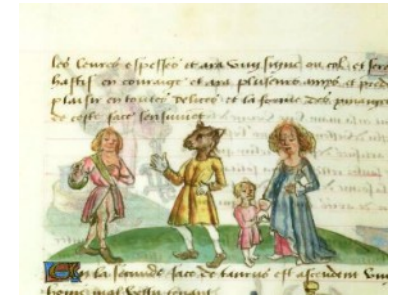 les leures espesses et ara ung signe ou col et sera
hastif en couraige et ara plusieurs amys et prend
plaisir en toutes delices et la forme des
de ceste face sensuiuent
En la seconde face de taurus est ascendent ung
homme mal vestu tenant